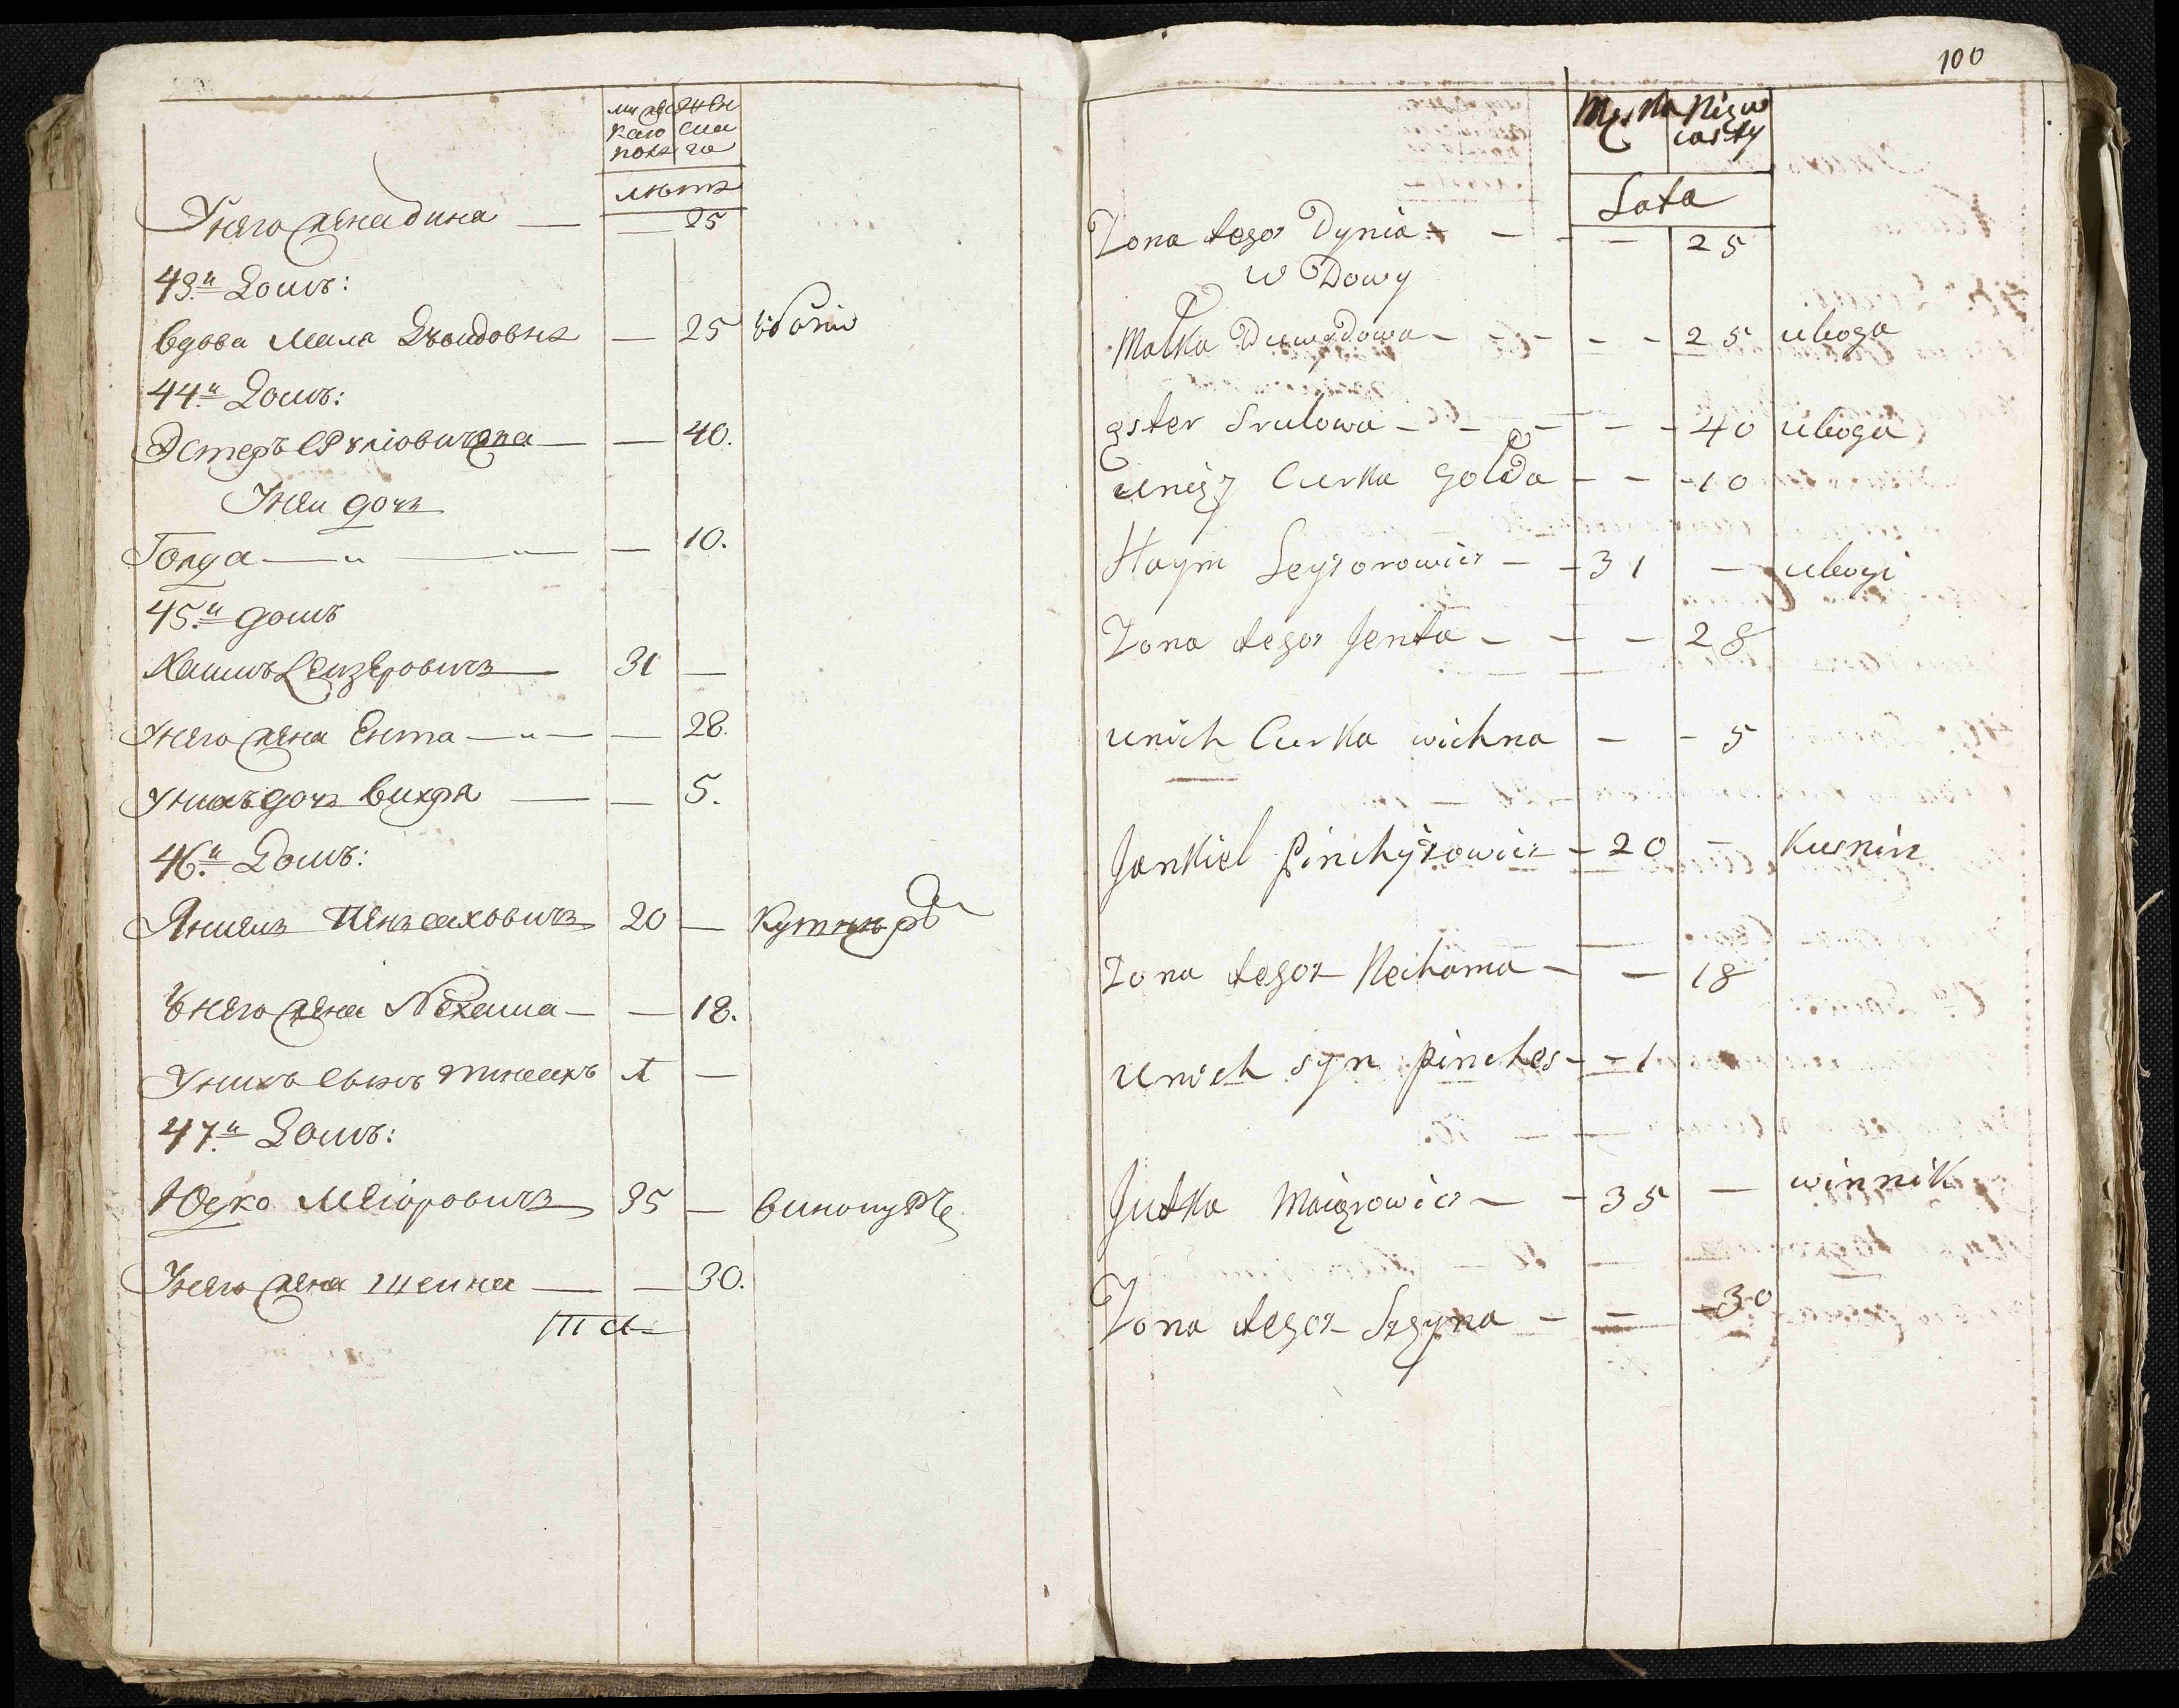 мужескаго пола | женскаго
лѣтъ
У него жена Дина — — 25
43.й Домъ:
Вдова Мала Давидовна — 25 убогая
44.й Домъ:
Эстеръ Сруліовичова — — 40.
У неи дочь
Голда — — — 10.
45.й домъ
Хаимъ Лейзеровичъ — 31 —
У него жена Ента — — — 28.
У нихъ дочь Вихна — — 5.
46.й Домъ:
Янкель Пинхасовичъ 20 —
У него жена Нехама — — 18.
У нихъ сынъ Пинхасъ 1 —
47.й Домъ:
Юдко Меіоровичъ 35 — винокуръ
У него жена Шейна — — 30.
100
Męska Niewiasty
Lata
Żona tegoż Dynia - - - - 25
W Dowy
Malka Dawidowa - - - - - 25 uboga
Ester Srulowa - - - - - 40 uboga
u niey Curka Golda - - - 10
Haym Leyzorowicz - - 31 - ubogi
Żona tegoż Jenta - - - 28
u nich Curka wichna - - 5
Jankiel Pinchysowicz - 20 - Kusnirz
Żona tegoż Nechama - - 18
u nich syn Pinches - - 1
Judka Maiorowicz - - 35 - winnik
Żona tegoż Szeyna - - - 30